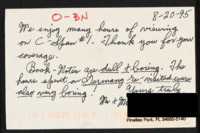 O-3N
8-20-95
We enjoy many hours of viewing
on C-Span #1. Thank you for your
coverage.
Book-Notes are dull & boring. The
hours spent on Germany re-visited were
also very boring! Yours truly
Mr & M
Pinellas Park, FL 34665-5740